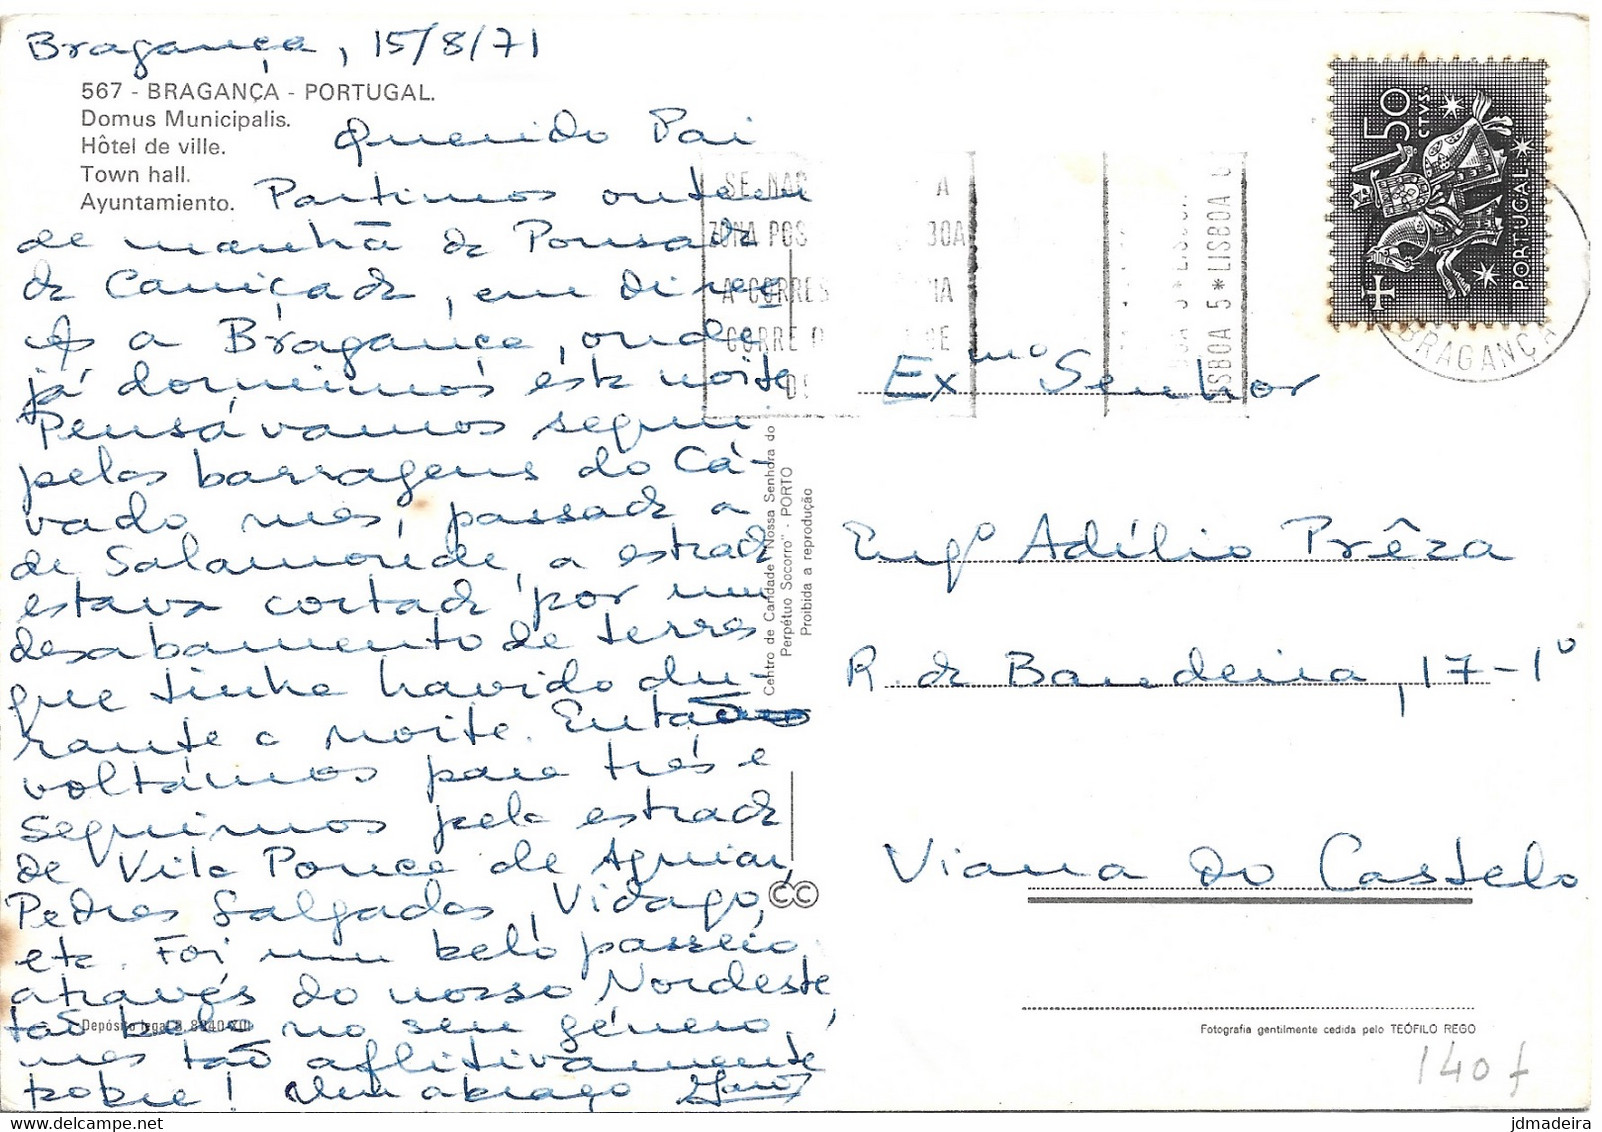 Bragança, 15/8/71
567 - BRAGANÇA - PORTUGAL.
Domus Municipalis.
Hôtel de ville.
Town hall.
Ayuntamiento.
Querido Pai
Partimos ontem
de manhã da Pousada
da Caniçada, em direc-
ção a Bragança, onde
já dormimos esta noite.
Pensávamos seguir
pelas barragens do Cá-
vado mas, passada a
de Salamonde, a estrada
estava cortada por um
desabamento de terras
que tinha havido du-
rante a noite. Então
voltámos para trás e
seguimos pela estrada
de Vila Pouca de Aguiar,
Pedras Salgadas, Vidago,
etc. Foi um belo passeio
através do nosso Nordeste
tão belo no seu género,
mas tão aflitivamente
pobre! Um abraço
SE NAS A
ZONA POS BOA
A CORRES IA
CORRE
LISBOA 5 * LISBOA
BRAGANÇA
50
CTVS.
PORTUGAL
Exmo Senhor
Engº Adélio Prêza
R. da Bandeira, 17-1º
Viana do Castelo
Centro de Caridade "Nossa Senhora do
Perpétuo Socorro" - PORTO
Proibida a reprodução
CC
Depósito legal
Fotografia gentilmente cedida pelo TEÓFILO REGO
140f
delcampe.net
jdmadeira